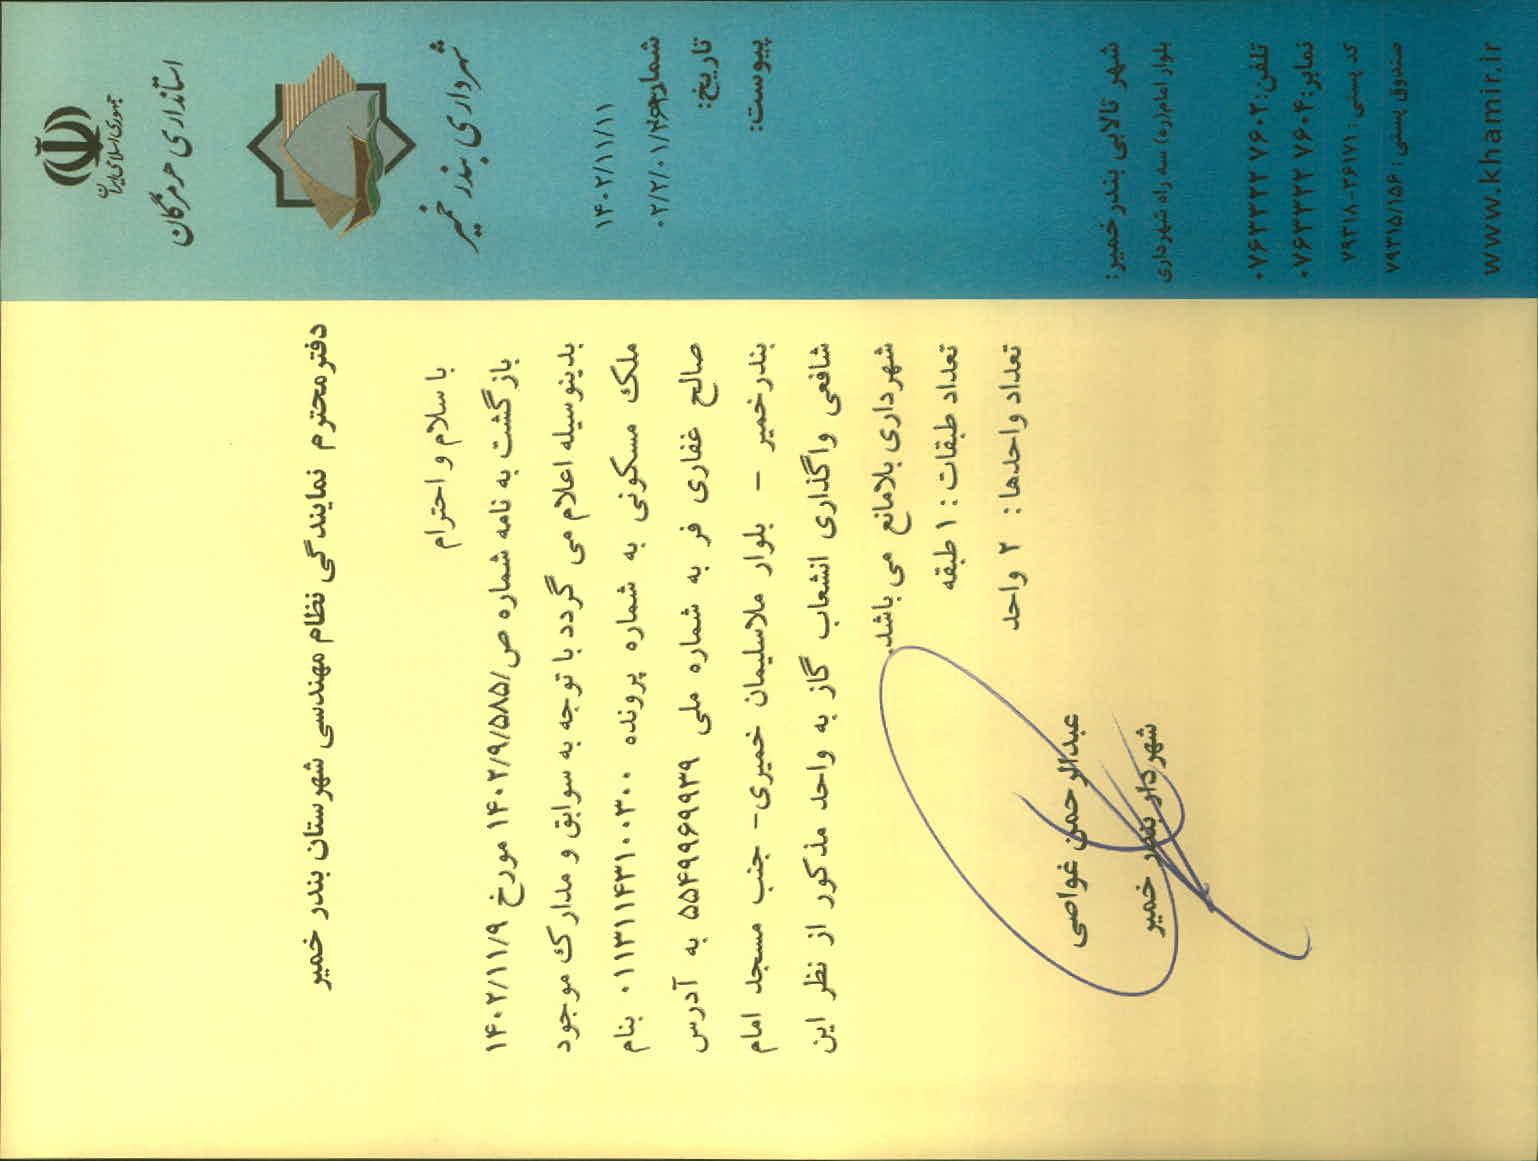 جمهوری اسلامی ایران
استانداری هرمزگان
شهرداری بندر خمیر
۱۴۰۲/۱۱/۱۱
شماره:
۰۲/۲/۰۱/
تاریخ:
پیوست:
شهر تالابی بندر خمیر:
بلوار امام(ره) سه راه شهرداری
تلفن: ۰۷۶۳۳۲۲ ۷۶۰۲
نمابر: ۰۷۶۳۳۲۲ ۷۶۰۴
کد پستی: ۷۹۳۱۸-۳۶۱۷۱
صندوق پستی: ۷۹۳۱۵/۱۵۶
www.khamir.ir
دفتر محترم نمایندگی نظام مهندسی شهرستان بندر خمیر
با سلام و احترام
بازگشت به نامه شماره ص/۱۴۰۲/۹/۵۸۵ مورخ ۱۴۰۲/۱۱/۹
بدینوسیله اعلام می گردد با توجه به سوابق و مدارک موجود
ملک مسکونی به شماره پرونده ۰۱۱۳۱۱۴۳۱۰۰۳۰۰ بنام
صالح غفاری فر به شماره ملی ۵۵۴۹۹۶۹۹۳۹ به آدرس
بندرخمیر - بلوار ملاسلیمان خمیری- جنب مسجد امام
شافعی واگذاری انشعاب گاز به واحد مذکور از نظر این
شهرداری بلامانع می باشد.
تعداد طبقات: ۱ طبقه
تعداد واحدها: ۲ واحد
عبدالرحمن غواصی
شهردار بندر خمیر